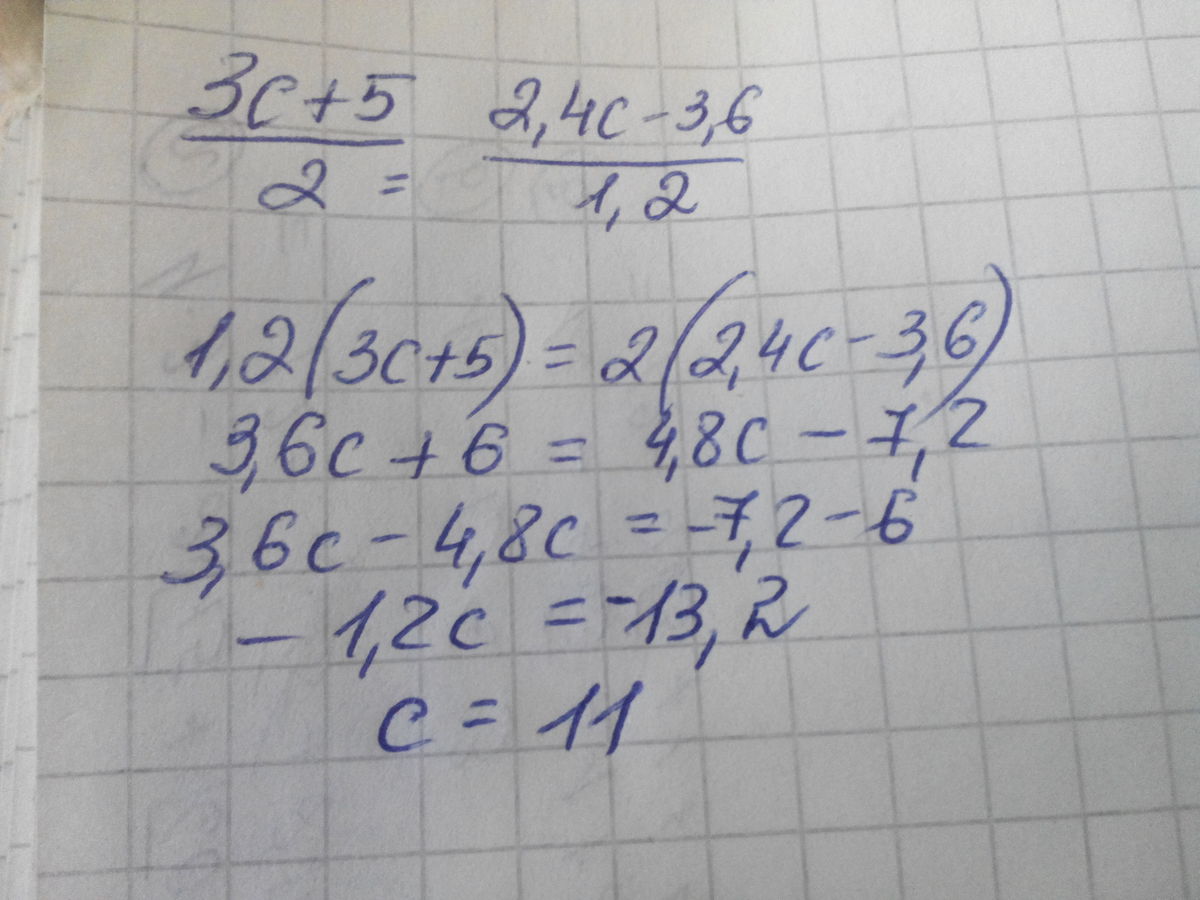 3c+5 / 2 = 2,4c-3,6 / 1,2
1,2(3c+5) = 2(2,4c-3,6)
3,6c + 6 = 4,8c - 7,2
3,6c - 4,8c = -7,2 - 6
- 1,2c = -13,2
c = 11